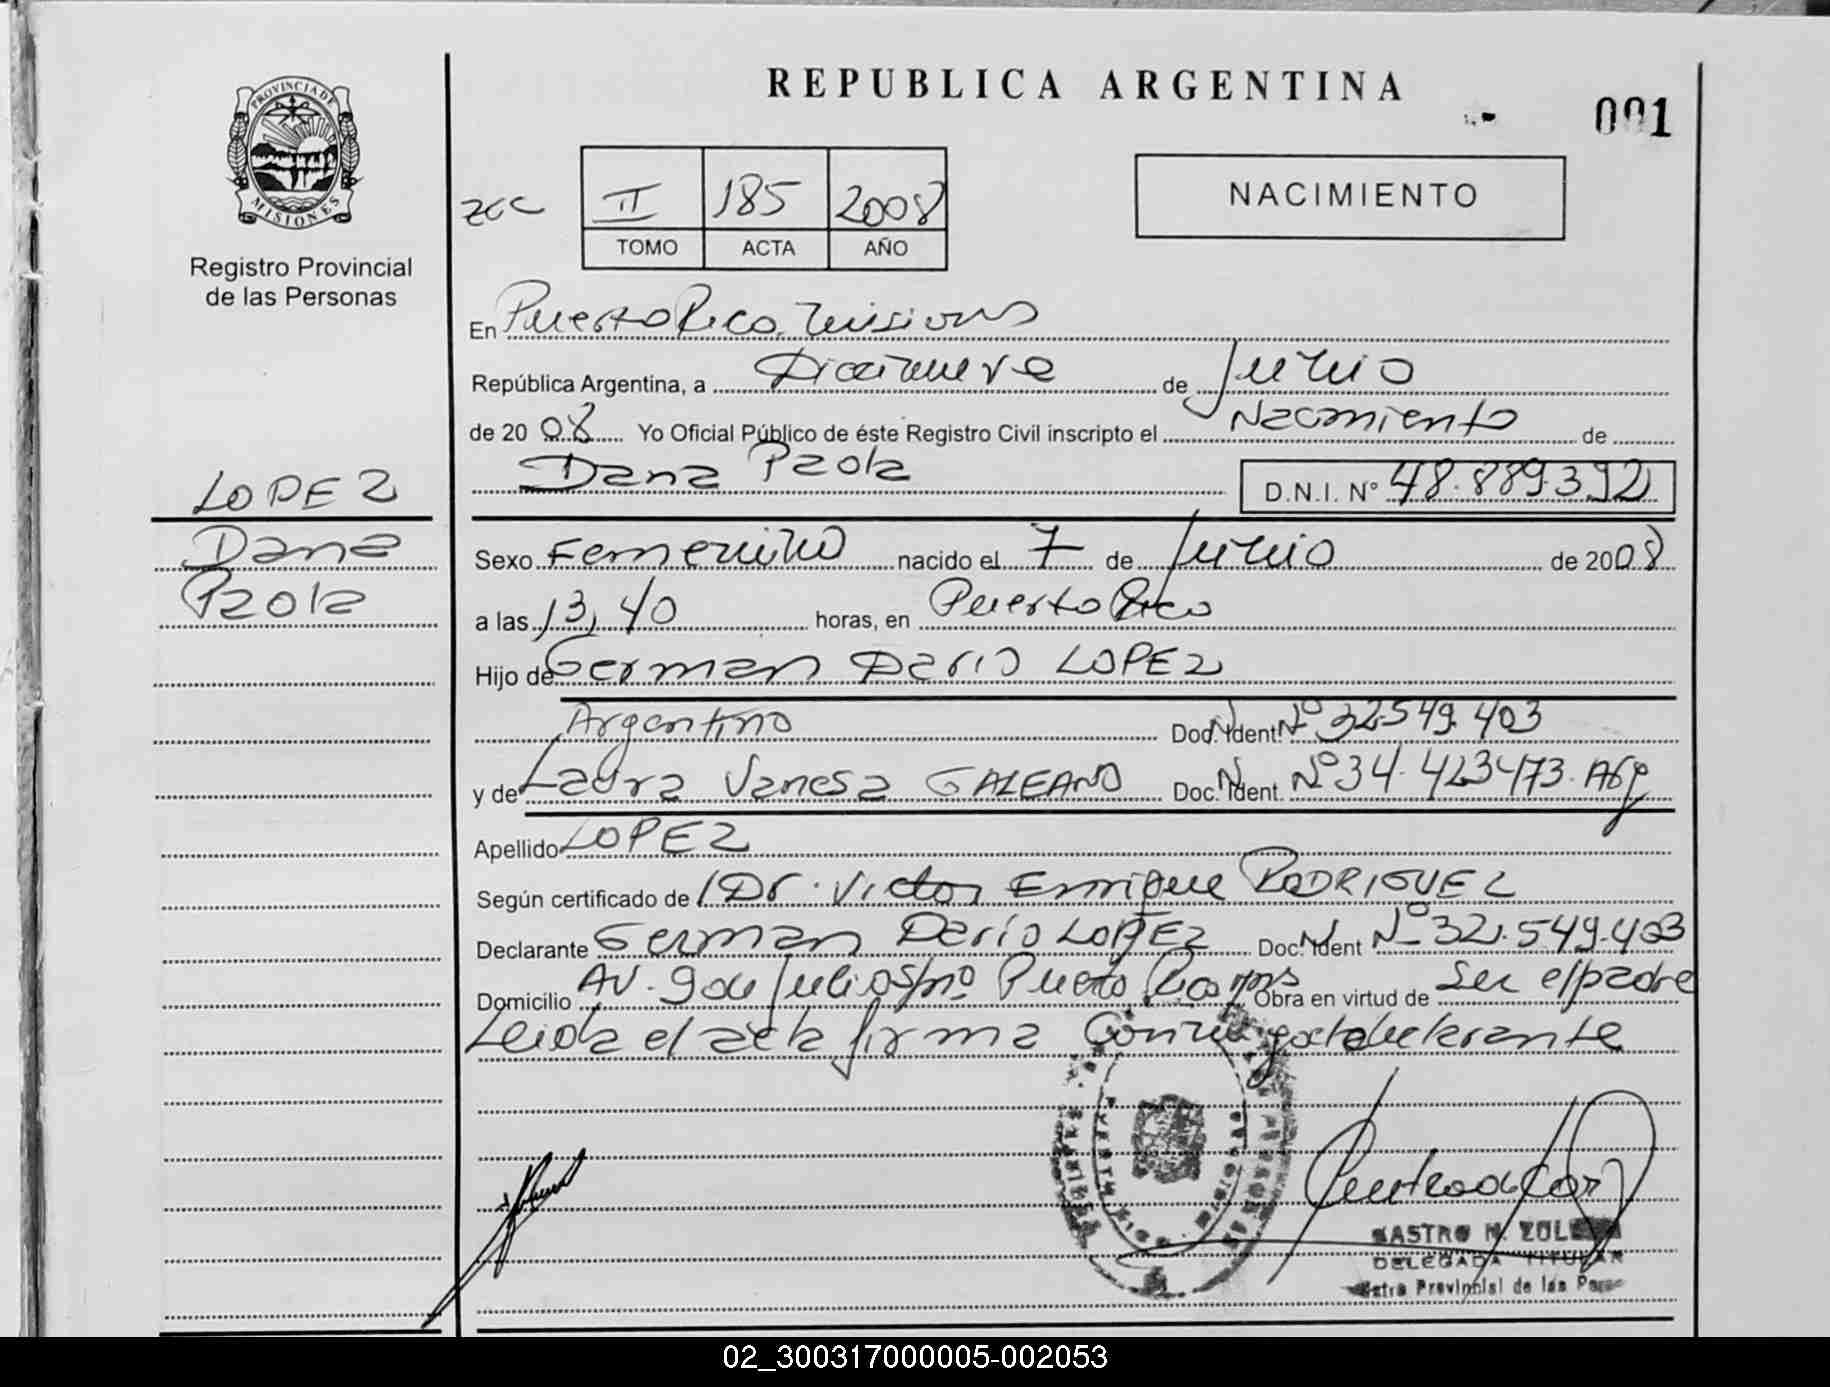 REPUBLICA ARGENTINA
001
PROVINCIA DE
MISIONES
Registro Provincial
de las Personas
II 185 2008
TOMO ACTA AÑO
NACIMIENTO
En Puerto Rico, Misiones
República Argentina, a Diecinueve de Junio
de 2008 Yo Oficial Público de éste Registro Civil inscripto el Nacimiento de
Dana Paola D.N.I. Nº 48.889.392
LOPEZ
Dana
Paola
Sexo Femenino nacido el 7 de Junio de 2008
a las 13,40 horas, en Puerto Rico
Hijo de German Dario LOPEZ
Argentino Doc. Ident. Nº 32.549.403
y de Laura Vanesa GALEANO Doc. Ident. Nº 34.423473. Arg
Apellido LOPEZ
Según certificado de / Dr. Victor Enrique RODRIGUEZ
Declarante German Darío LOPEZ Doc. Ident Nº 32.549.403
Domicilio AV. 9 de Julio s/nº Puerto Rico Mns Obra en virtud de Ser el padre
Leida el acta firma Conmigo el declarante
CASTRO M. ZUL
DELEGADA TITULAR
Provincial de las
02_300317000005-002053